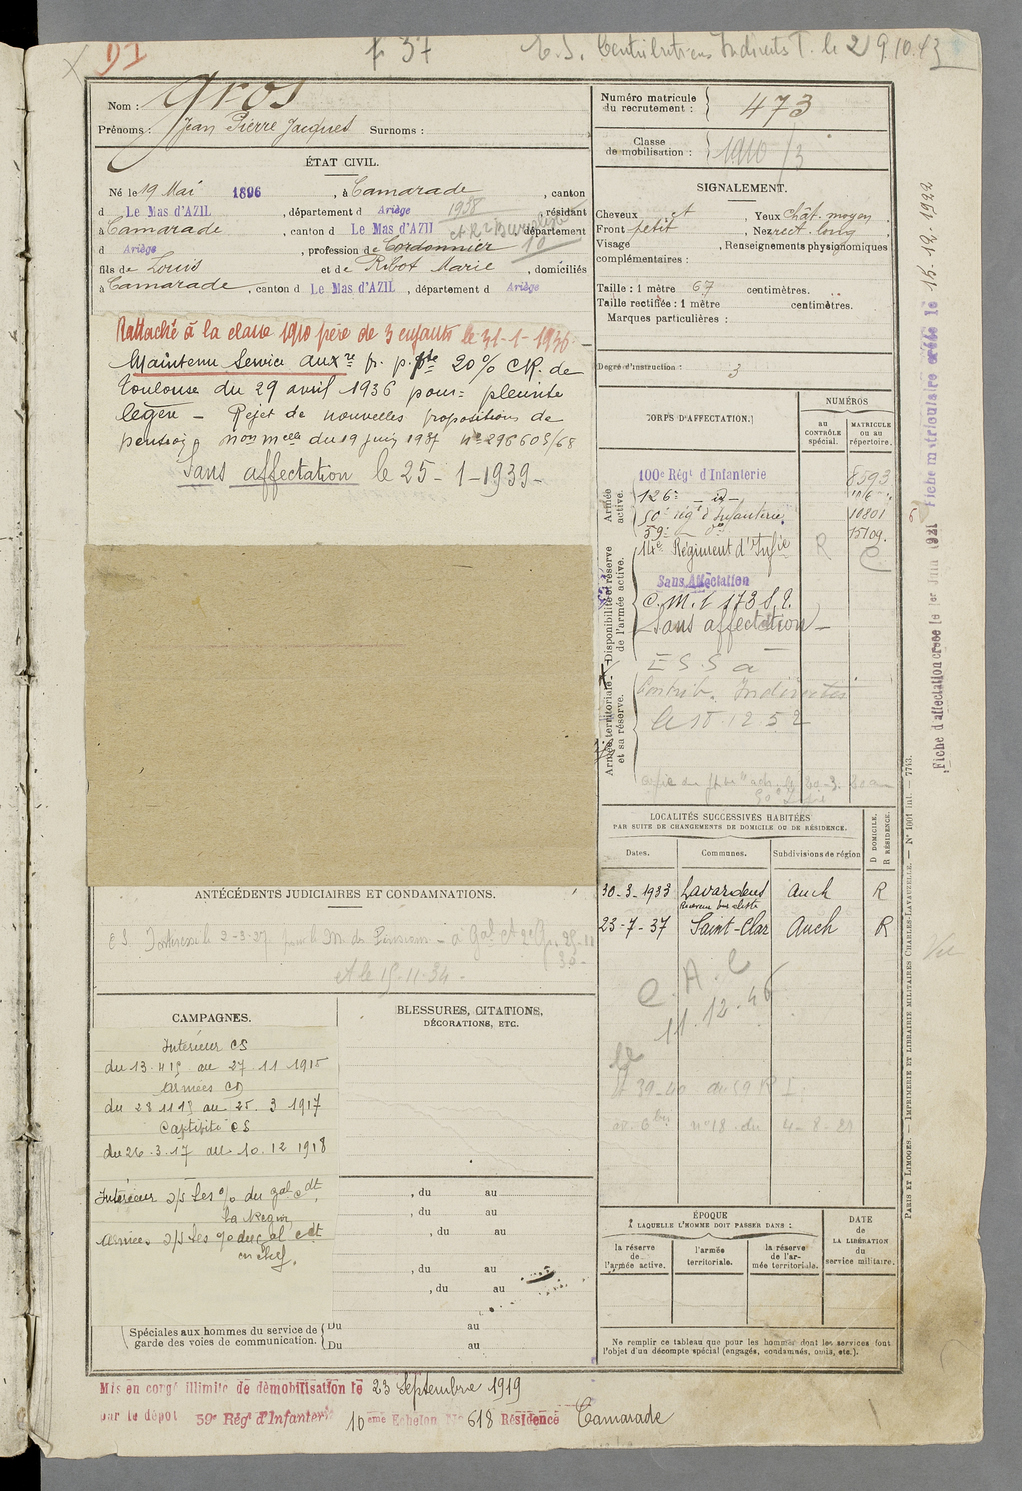 DI
f 37
E.S. Contributions Indirects T. le 29.10.43
Nom : Gros
Prénoms : Jean Pierre Jacques Surnoms :
ÉTAT CIVIL.
Né le 19 Mai 1896, à Camarade, canton
d Le Mas d'AZIL, département d Ariège 1938 résidant
à Camarade, canton d Le Mas d'AZIL département
d Ariège, profession de Cordonnier
fils de Louis et de Ribot Marie, domiciliés
à Camarade, canton d Le Mas d'AZIL, département d Ariège
Rattaché à la classe 1910 père de 3 enfants le 31-1-1936
Maintenu Service auxre pr. p. pte 20% CR. de
Toulouse du 29 avril 1936 pour: pleurite
légère – Rejet de nouvelles propositions de
pension du 19 juin 1937 n° 296605/68
Sans affectation le 25-1-1939-
ANTÉCÉDENTS JUDICIAIRES ET CONDAMNATIONS.
et le 15-11-34-
CAMPAGNES.
Intérieur CS
du 13.4.15 au 27.11.1915
Armées CD
du 28 11 15 au 25.3 1917
Captivité CS
du 26.3.17 au 10.12 1918
Intérieur
la Region
Armées
en chef.
Spéciales aux hommes du service de
garde des voies de communication.
Du au
Du au
BLESSURES, CITATIONS,
DÉCORATIONS, ETC.
, du au
, du au
, du au
, du au
, du au
Numéro matricule
du recrutement : 473
Classe
de mobilisation : 1910/3
SIGNALEMENT.
Cheveux et, Yeux chât. moyen
Front petit, Nez rect. long
Visage, Renseignements physionomiques
complémentaires :
Taille : 1 mètre 67 centimètres.
Taille rectifiée : 1 mètre centimètres.
Marques particulières :
Degré d'instruction : 3
CORPS D'AFFECTATION.
NUMÉROS
AU
CONTRÔLE
spécial.
MATRICULE
OU AU
répertoire.
Armée
active.
100e Régt d'Infanterie 8593
126e – d° –
50e régt d'Infanterie. 10801
59e – d° 15109.
Disponibilité et réserve
de l'armée active.
14e Régiment d'Infie R C
Sans Affectation
C.M.I 173 S.R.
Sans affectation –
Armée territoriale
et sa réserve.
E S S a
Contrib. Indirectes
le 10.12.52
LOCALITÉS SUCCESSIVES HABITÉES
PAR SUITE DE CHANGEMENTS DE DOMICILE OU DE RÉSIDENCE.
Dates. Communes. Subdivisions de région
D DOMICILE.
R RÉSIDENCE.
30-3-1933 Lavardens Auch R
Receveur buraliste
23-7-37 Saint-Clar Auch R
C.A.C
11.12.46
ÉPOQUE
A LAQUELLE L'HOMME DOIT PASSER DANS :
la réserve
de
l'armée active.
l'armée
territoriale.
la réserve
de l'ar-
mée territoriale.
DATE
de
LA LIBÉRATION
du
service militaire.
Ne remplir ce tableau que pour les hommes dont les services font
l'objet d'un décompte spécial (engagés, condamnés, omis, etc.).
Mis en congé illimité de démobilisation le 23 Septembre 1919
par le dépôt 59e Régt d'Infanterie 10eme Echelon N° 618 Résidence Camarade
Fiche d'affectation créée le 1er Juin 1921 Fiche matriculaire créée le 15.12.1922
PARIS ET LIMOGES. — IMPRIMERIE ET LIBRAIRIE MILITAIRES CHARLES-LAVAUZELLE. — N° 1001 int. — 7713.
Vu